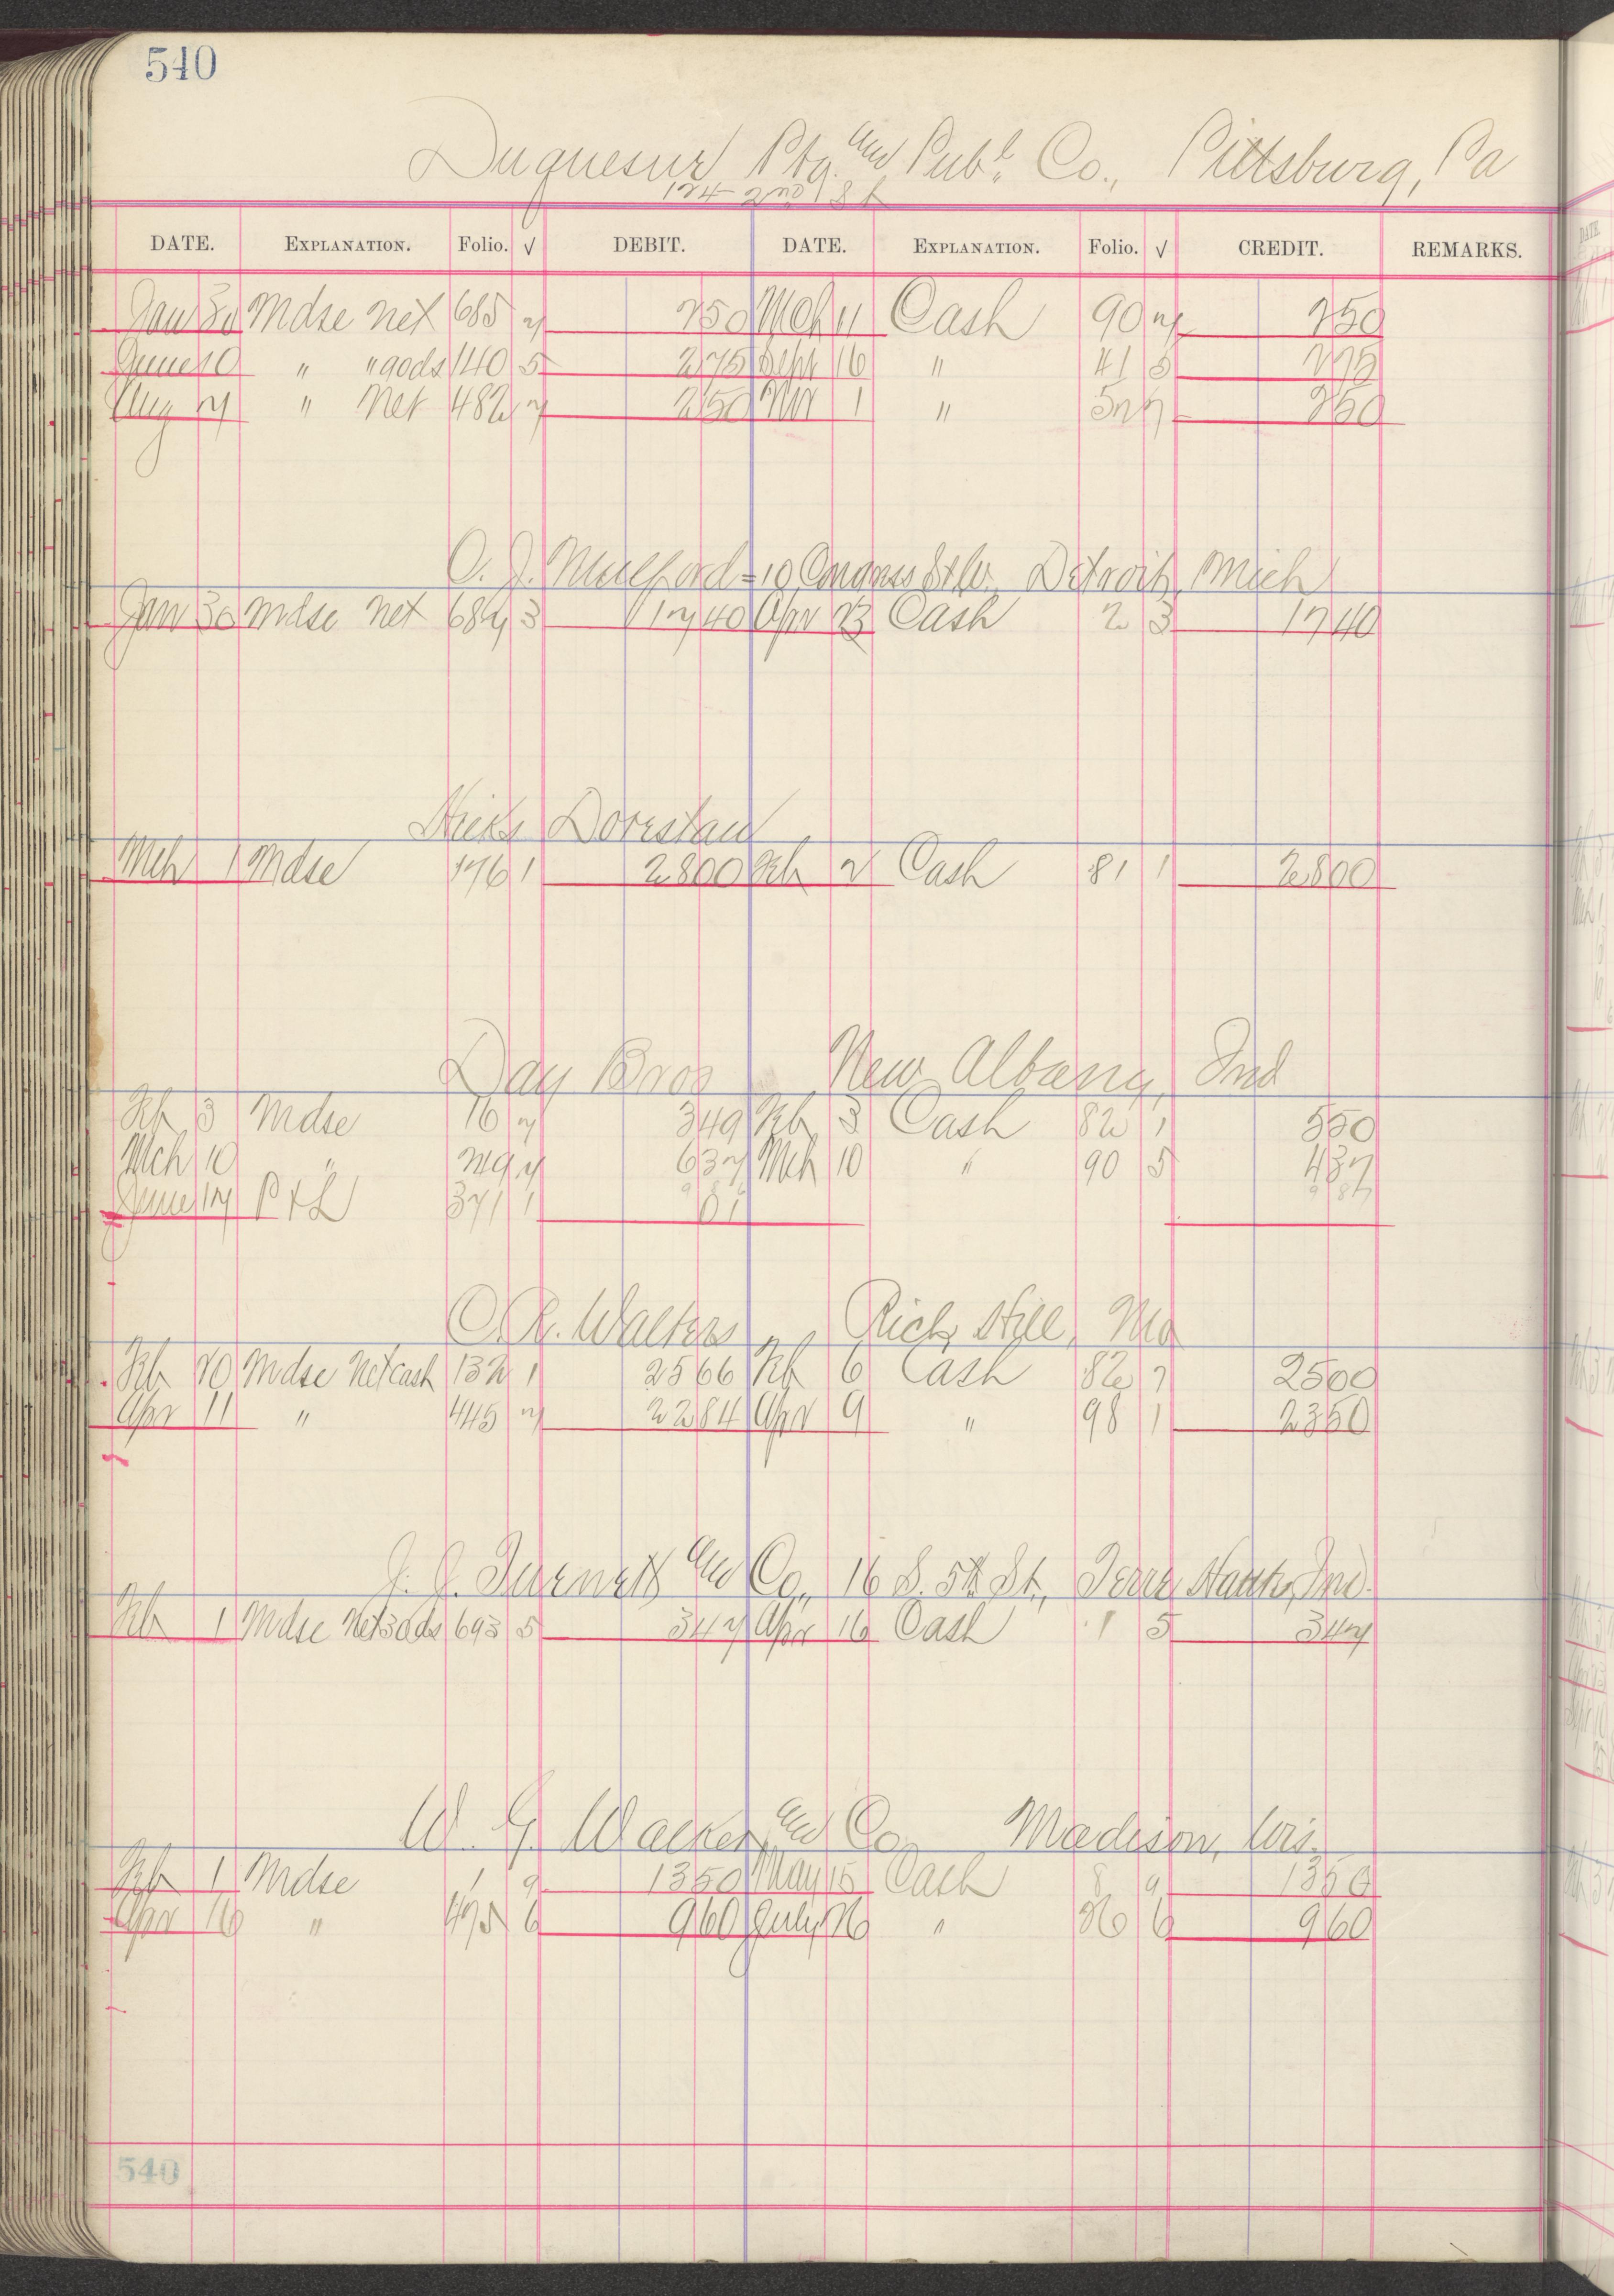 540
Duquesne Ptg. and Publ. Co., Pittsburg, Pa
124 2nd St
DATE. EXPLANATION. Folio. √ DEBIT. DATE. EXPLANATION. Folio. √ CREDIT. REMARKS.
Jan 30 Mdse net 685 2 250 Mch 11 Cash 90 2 250
June 10 " " 90ds 140 5 275 Sept 16 " 41 5 275
Aug 2 " Net 482 2 250 Nov 1 " 52 2 250
C. J. Mulford = 19 Congress St W. Detroit, Mich
Jan 30 Mdse net 687 3 1740 Apr 23 Cash 2 3 1740
Hicks
Mch 1 Mdse 176 1 2800 Feb 2 Cash 81 1 2800
Day Bros New Albany, Ind
Feb 3 Mdse 16 2 349 Feb 3 Cash 82 1 350
Mch 10 " 219 2 637 Mch 10 " 90 5 637
June 17 P & L 371 1 01
C. R. Walters Rich Hill, Mo
Feb 20 Mdse Net cash 132 1 2566 Feb 6 Cash 82 2500
Apr 11 " 445 2 2284 Apr 9 " 98 1 2350
and Co., 16 S. 5th St., Terre Haute, Ind.
Feb 1 Mdse Net 30ds 693 5 347 Apr 16 Cash 1 5 347
W. G. Walker and Co Madison, Wis.
Feb 1 Mdse 1 9 1350 May 15 Cash 8 9 1350
Apr 16 " 6 960 July 26 " 26 6 960
540